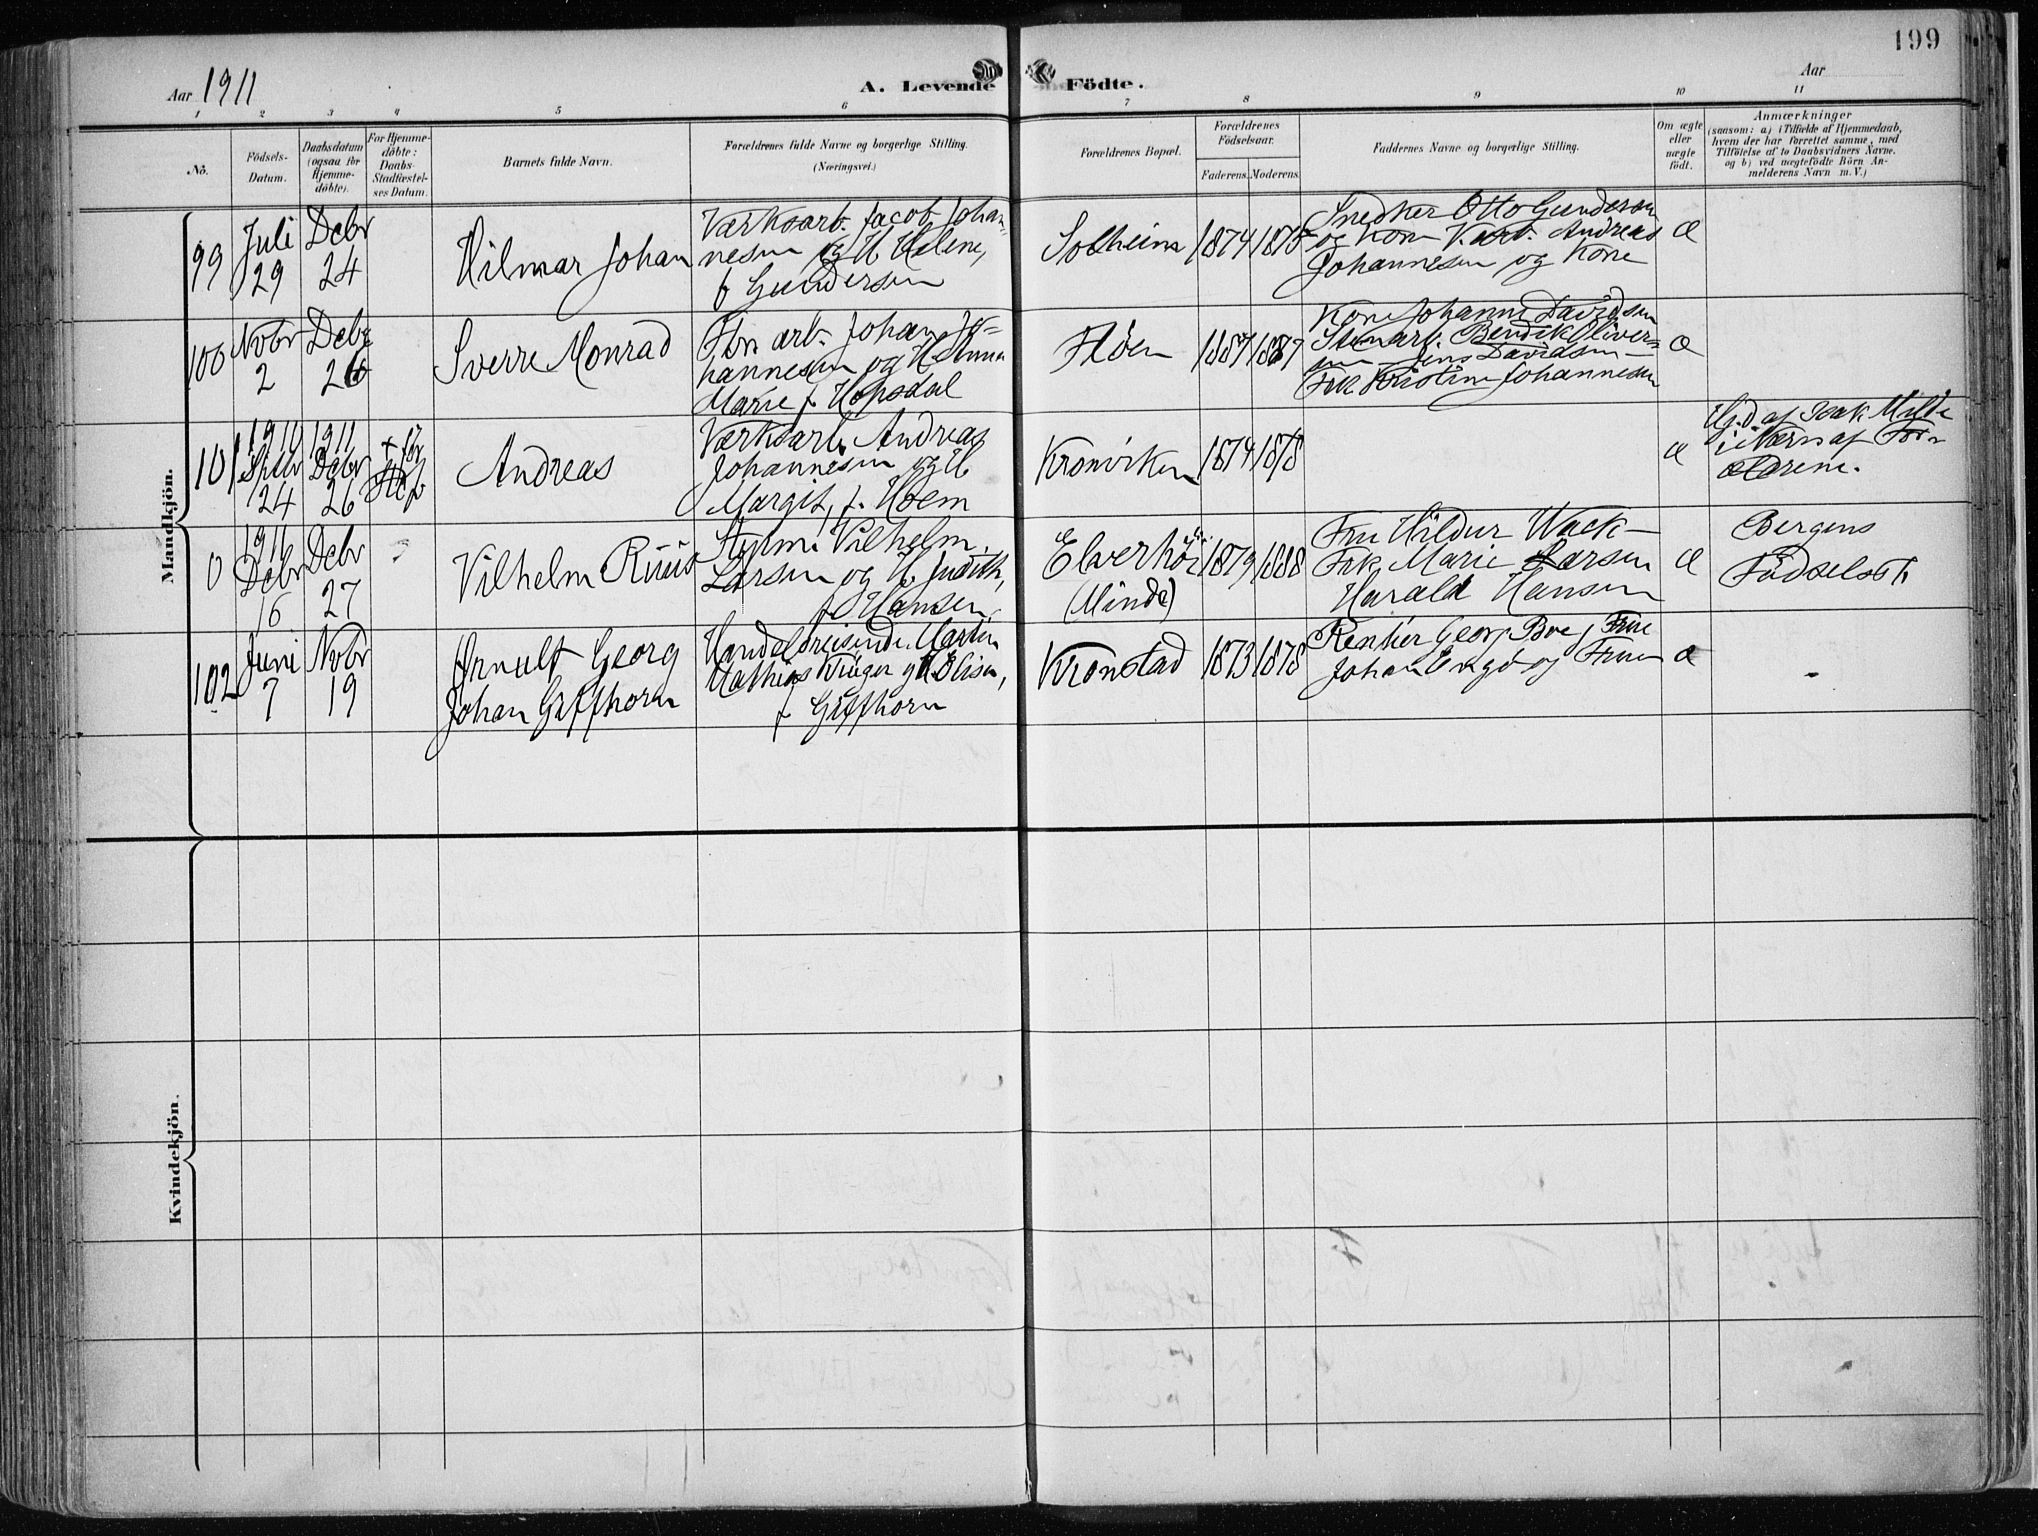 199
Aar 1911
A. Levende Födte.
Aar
1 2 3 4 5 6 7 8 9 10 11
No.
Födsels-
Datum.
Daabsdatum
(ogsaa for
Hjemme-
döbte).
For Hjemme-
döbte:
Daabs-
Stadfæstel-
ses Datum.
Barnets fulde Navn.
Forældrenes fulde Navne og borgerlige Stilling.
(Næringsvei.)
Forældrenes Bopæl.
Forældrenes
Födselsaar.
Faderens. Moderens.
Faddernes Navne og borgerlige Stilling.
Om ægte
eller
uægte
födt.
Anmærkninger
(saasom: a) i Tilfælde af Hjemmedaab,
hvem der har forrettet samme, med
Tilföielse af to Daabsvidners Navne.
og b) ved uægtefödte Börn An-
melderens Navn m. V.)
Mandkjön.
99
Juli
29
Debr
24
Hilmar Johan
Værksarb. Jacob Johan-
nesen og H Helene,
f Gundersen
Solheim
1874 1875
Snedker Otto Gundersen
og Kone V.arb. Andreas
Johannesen og Kone
Æ
100
Novbr
2
Debr
26
Sverre Monrad
arb. Johan Jo-
hannesen og H Anna
Marie f. Hopsdal
Flöen
1887 1887
Kone Johanne Davidsen
Stenarb. Bendik Oliver-
sen Jens Davidsen
Frk Kristine Johannesen
Æ
101
1911
Septbr
24
1911
Debr
26
+ før
Stf
Andreas
Værksarb. Andreas
Johannesen og H
Margit, f. Hoem
Kronviken
1874 1878
Æ
Hjd. af Isak Milde
i Nærv af For-
ældrene.
0
1911
Debr
16
Debr
27
Vilhelm Riiis
Styrm. Vilhelm
Larsen og H Judith,
f Hansen
Elverhöi
(Minde)
1879 1888
Fru Hildur Wack-
Frk. Marie Larsen
Harald Hansen
Æ
Bergens
Födselsst.
102
Juni
7
Novbr
19
Arnulf Georg
Johan Giffhorn
Handelsreisende Martin
Mathias Krüger og H. Elisa,
f Giffhorn
Kronstad
1873 1878
Rentier Georg Boe, Frue
Johan og Frue
Æ
Kvindekjön.